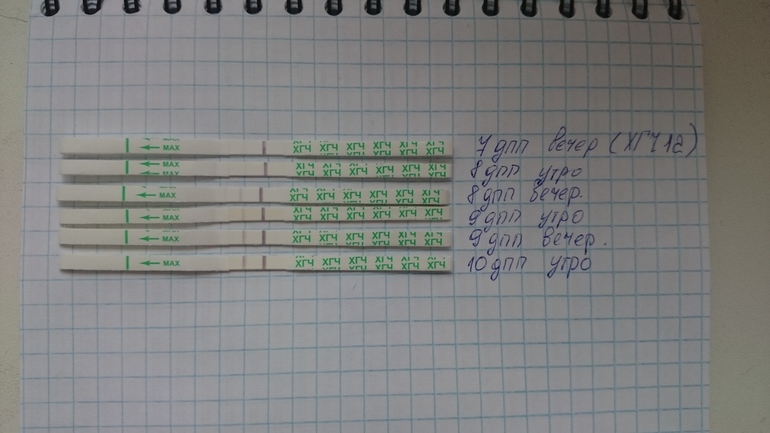 MAX ХГЧ ХГЧ ХГЧ ХГЧ ХГЧ ХГЧ 7 дпп вечер (ХГЧ 12)
MAX ХГЧ ХГЧ ХГЧ ХГЧ ХГЧ ХГЧ 8 дпп утро
MAX ХГЧ ХГЧ ХГЧ ХГЧ ХГЧ ХГЧ 8 дпп вечер.
MAX ХГЧ ХГЧ ХГЧ ХГЧ ХГЧ ХГЧ 9 дпп утро
MAX ХГЧ ХГЧ ХГЧ ХГЧ ХГЧ ХГЧ 9 дпп вечер.
MAX ХГЧ ХГЧ ХГЧ ХГЧ ХГЧ ХГЧ 10 дпп утро